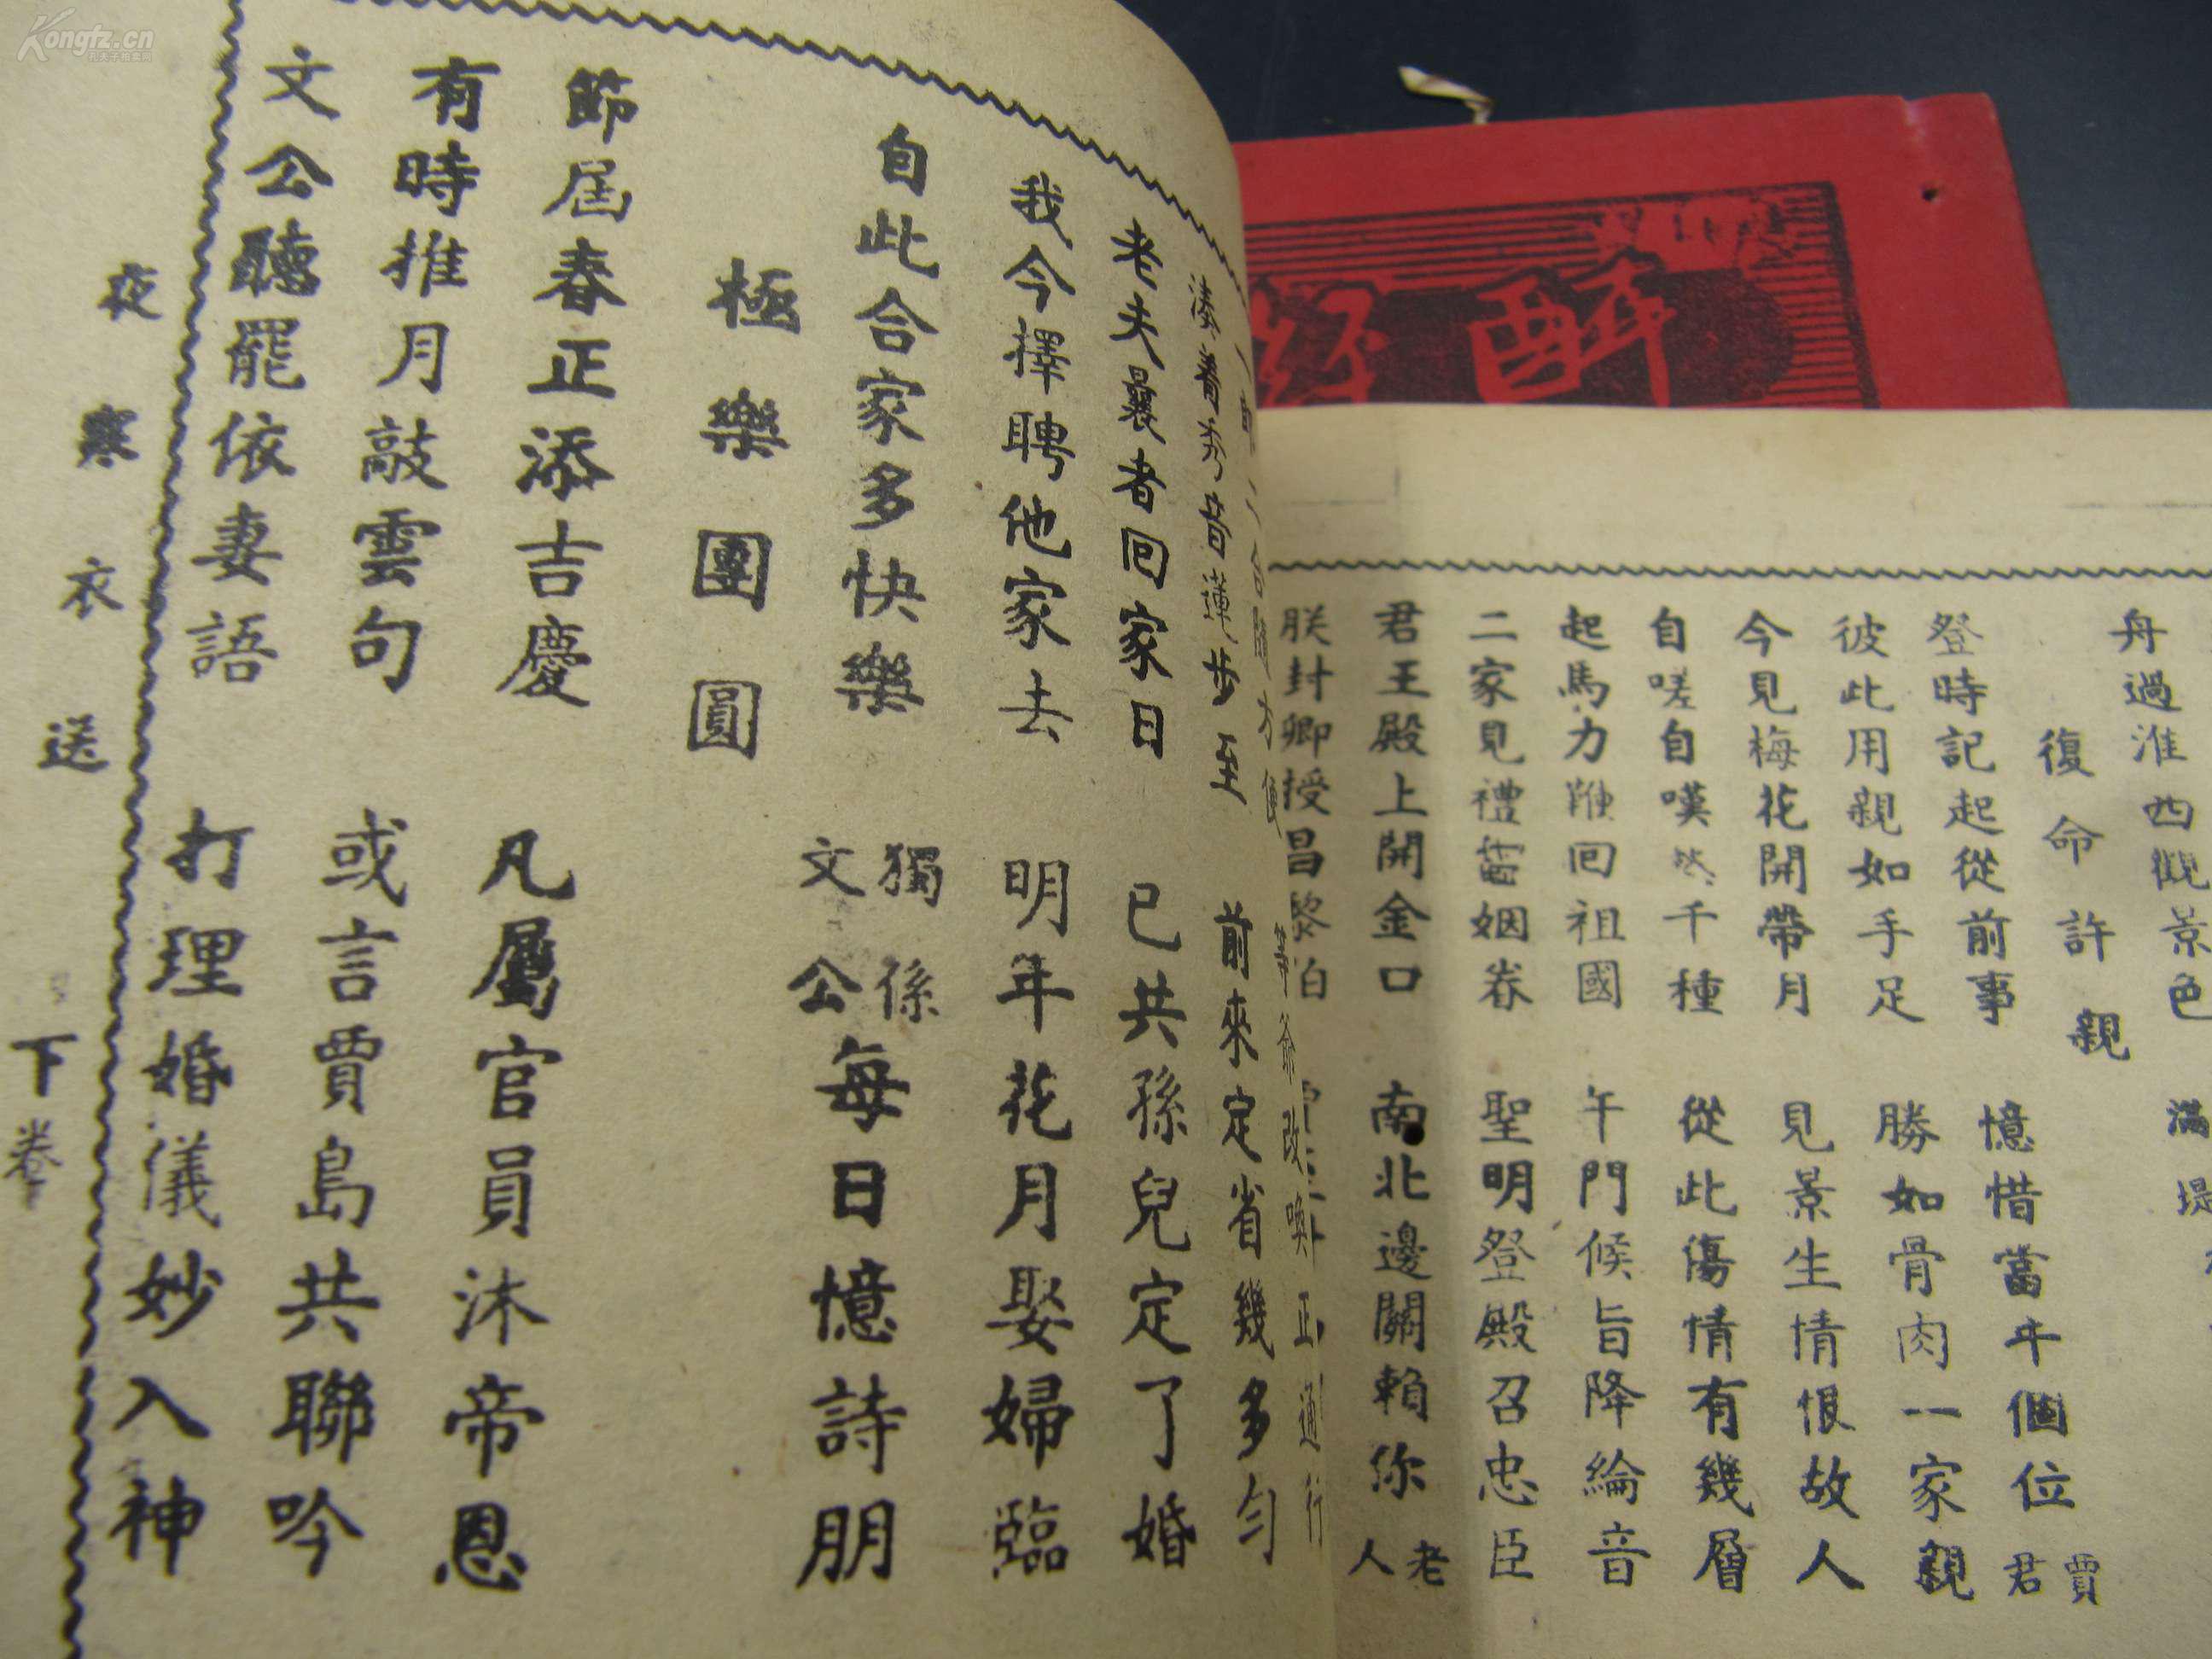 舟過淮西觀景色 滿堤
復命許親
登時記起從前事 憶惜當年個位賈君
彼此用親如手足 勝如骨肉一家親
今見梅花開帶月 見景生情恨故人
自嗟自嘆愁千種 從此傷情有幾層
起馬力鞭回祖國 午門候旨降綸音
二家見禮當姻眷 聖明登殿召忠臣
君王殿上開金口 南北邊關賴你老人
朕封卿授昌黎伯
等爺改喚正通行
蓮步至 前來定省幾多勻
老夫曩者回家日 已共孫兒定了婚
我今擇聘他家去 明年花月娶婦臨
自此合家多快樂 獨係文公每日憶詩朋
極樂團圓
節屆春正添吉慶 凡屬官員沐帝恩
有時推月敲雲句 或言賈島共聯吟
文公聽罷依妻語 打理婚儀妙入神
夜寒衣送 下卷
醉
Kongfz.cn